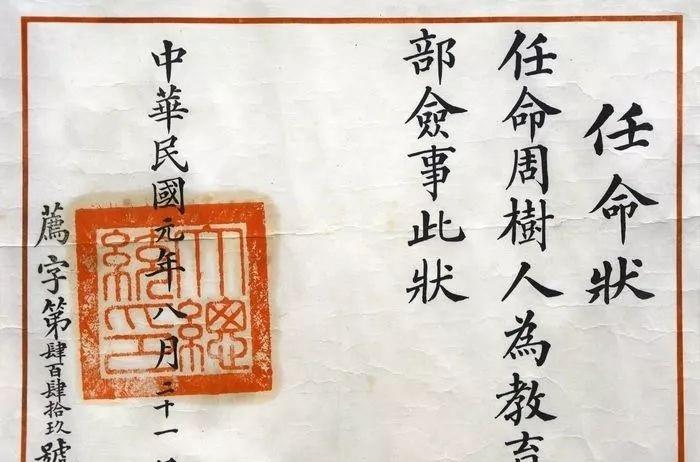 任命狀
任命周樹人為教育
部僉事此狀
中華民國元年八月二十一
大總
統印
薦字第肆百肆拾玖號